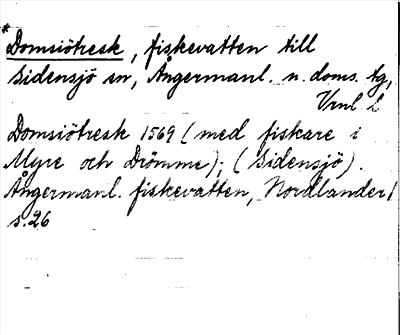 *Domsiötresk, fiskevatten till
Sidensjö sn, Ångermanl. n. doms. tg,
Vrnl L
Domsiötresk 1569 (med fiskare i
Myre och Drömme); (Sidensjö).
Ångermanl. fiskevatten, Nordlander/
s. 26